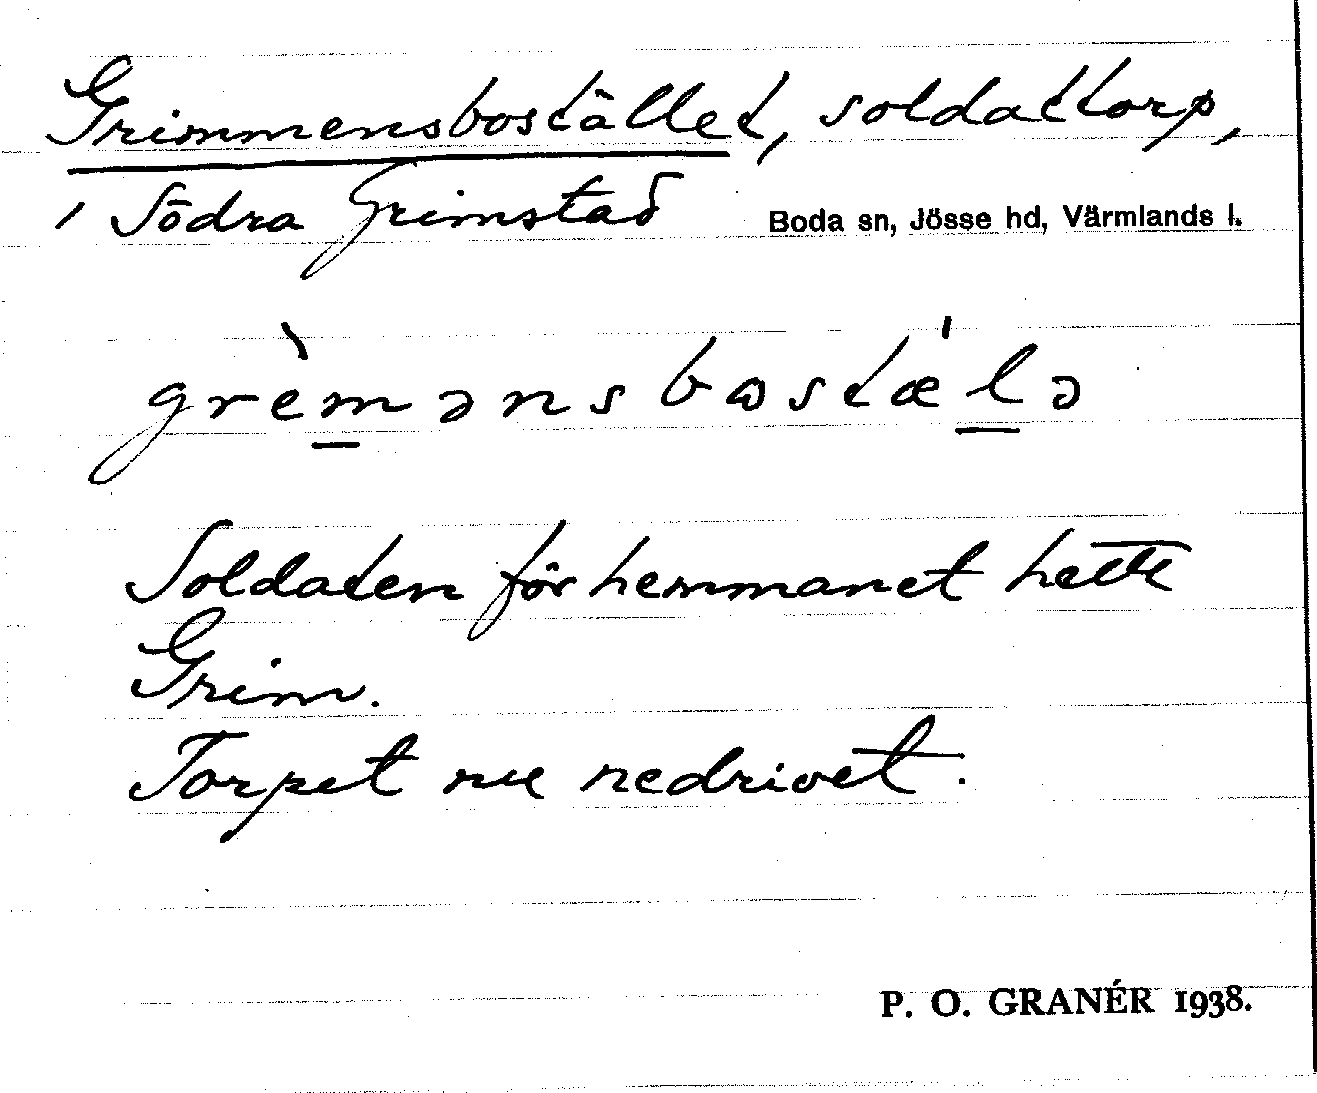 Grimmensbostället, soldattorp,
i Södra Grimstad Boda sn, Jösse hd, Värmlands l.
grèmənsbωstælə
Soldaten för hemmanet hette
Grim.
Torpet nu nedrivet.
P. O. GRANÉR 1938.